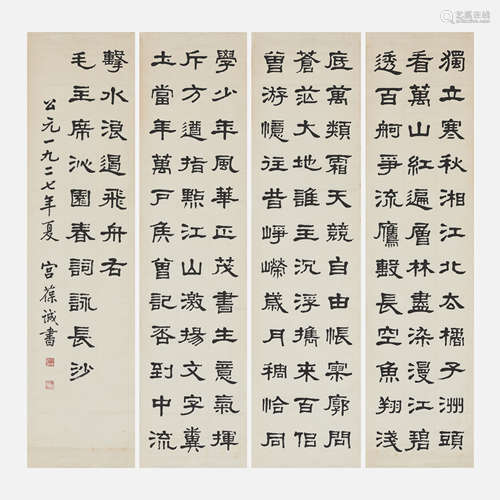 獨立寒秋湘江北去橘子洲頭
看萬山紅遍層林盡染漫江碧
透百舸爭流鷹擊長空魚翔淺
底萬類霜天競自由悵寥廓問
蒼茫大地誰主沉浮攜來百侶
曾游憶往昔崢嶸歲月稠恰同
學少年風華正茂書生意氣揮
斥方遒指點江山激揚文字糞
土當年萬戶侯曾記否到中流
擊水浪遏飛舟右
毛主席沁園春詞詠長沙
公元一九二七年夏 宮葆誠書
艺狐在线